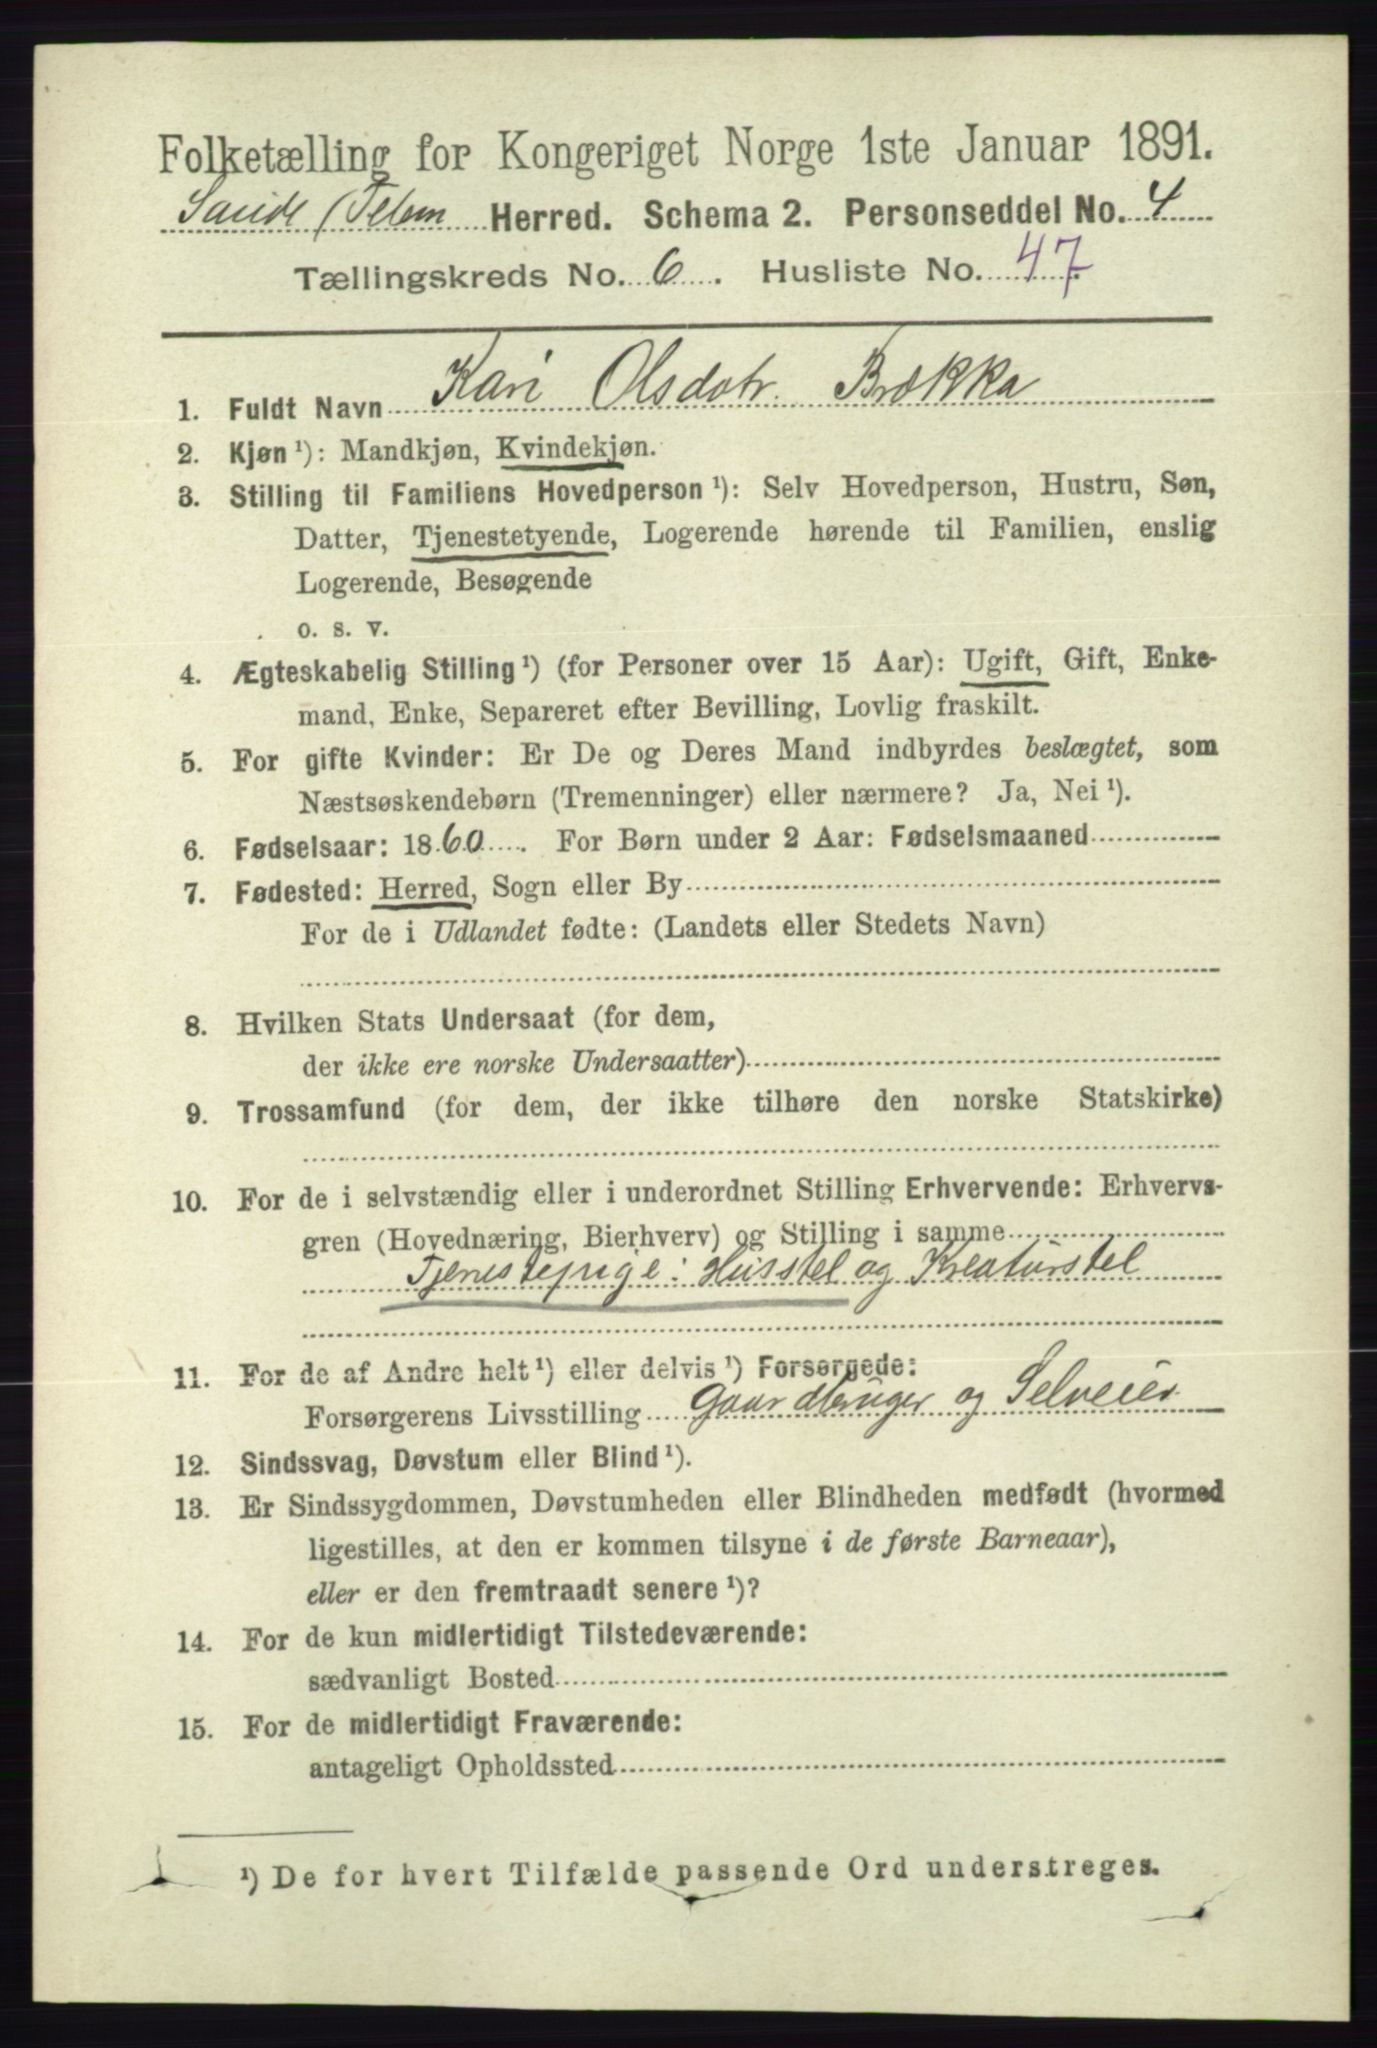 Folketælling for Kongeriget Norge 1ste Januar 1891.
Saude / Telem Herred. Schema 2. Personseddel No. 4
Tællingskreds No. 6. Husliste No. 47.
1. Fuldt Navn Kari Olsdotr. Brækka
2. Kjøn ¹): Mandkjøn, Kvindekjøn.
3. Stilling til Familiens Hovedperson ¹): Selv Hovedperson, Hustru, Søn,
Datter, Tjenestetyende, Logerende hørende til Familien, enslig
Logerende, Besøgende
o. s. v.
4. Ægteskabelig Stilling ¹) (for Personer over 15 Aar): Ugift, Gift, Enke-
mand, Enke, Separeret efter Bevilling, Lovlig fraskilt.
5. For gifte Kvinder: Er De og Deres Mand indbyrdes beslægtet, som
Næstsøskendebørn (Tremenninger) eller nærmere? Ja, Nei ¹).
6. Fødselsaar: 1860. For Børn under 2 Aar: Fødselsmaaned
7. Fødested: Herred, Sogn eller By
For de i Udlandet fødte: (Landets eller Stedets Navn)
8. Hvilken Stats Undersaat (for dem,
der ikke ere norske Undersaatter)
9. Trossamfund (for dem, der ikke tilhøre den norske Statskirke)
10. For de i selvstændig eller i underordnet Stilling Erhvervende: Erhvervs-
gren (Hovednæring, Bierhverv) og Stilling i samme
Tjenestepige: Husstel og Kreaturstel
11. For de af Andre helt ¹) eller delvis ¹) Forsørgede:
Forsørgerens Livsstilling Gaardbruger og Selveier
12. Sindssvag, Døvstum eller Blind ¹).
13. Er Sindssygdommen, Døvstumheden eller Blindheden medfødt (hvormed
ligestilles, at den er kommen tilsyne i de første Barneaar),
eller er den fremtraadt senere ¹)?
14. For de kun midlertidigt Tilstedeværende:
sædvanligt Bosted
15. For de midlertidigt Fraværende:
antageligt Opholdssted
¹) De for hvert Tilfælde passende Ord understreges.